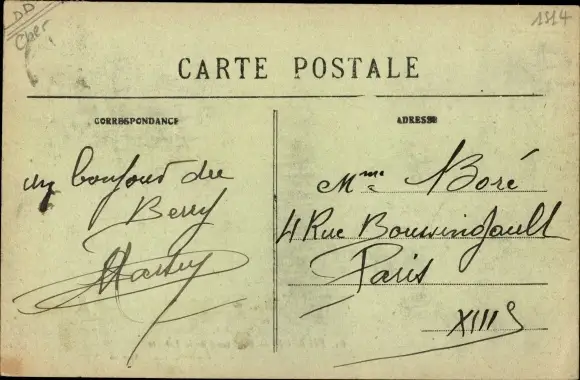 DD
Cher
1514
CARTE POSTALE
CORRESPONDANCE
ADRESSE
un bonjour du
Berry
Mme Boré
4 Rue Boussingault
Paris
XIIIe